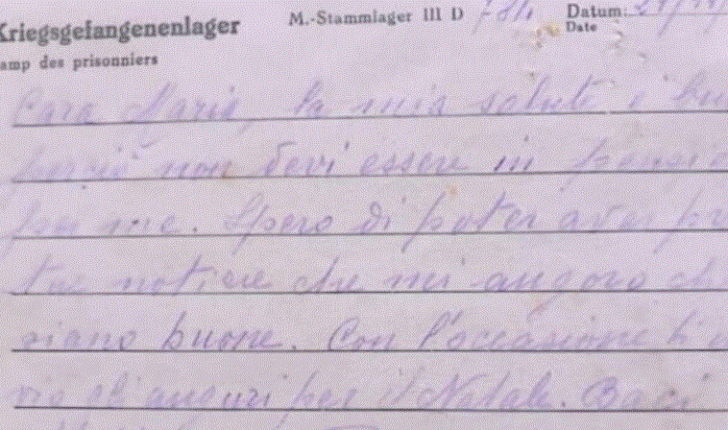 Kriegsgefangenenlager M.-Stammlager III D Datum:
Camp des prisonniers Date
Cara Maria, la mia salute è bu
perciò non devi essere in pensie
per me. Spero di poter aver pr
tue notizie che mi auguro ch
siano buone. Con l'occasione ti
gli auguri per il Natale. Baci